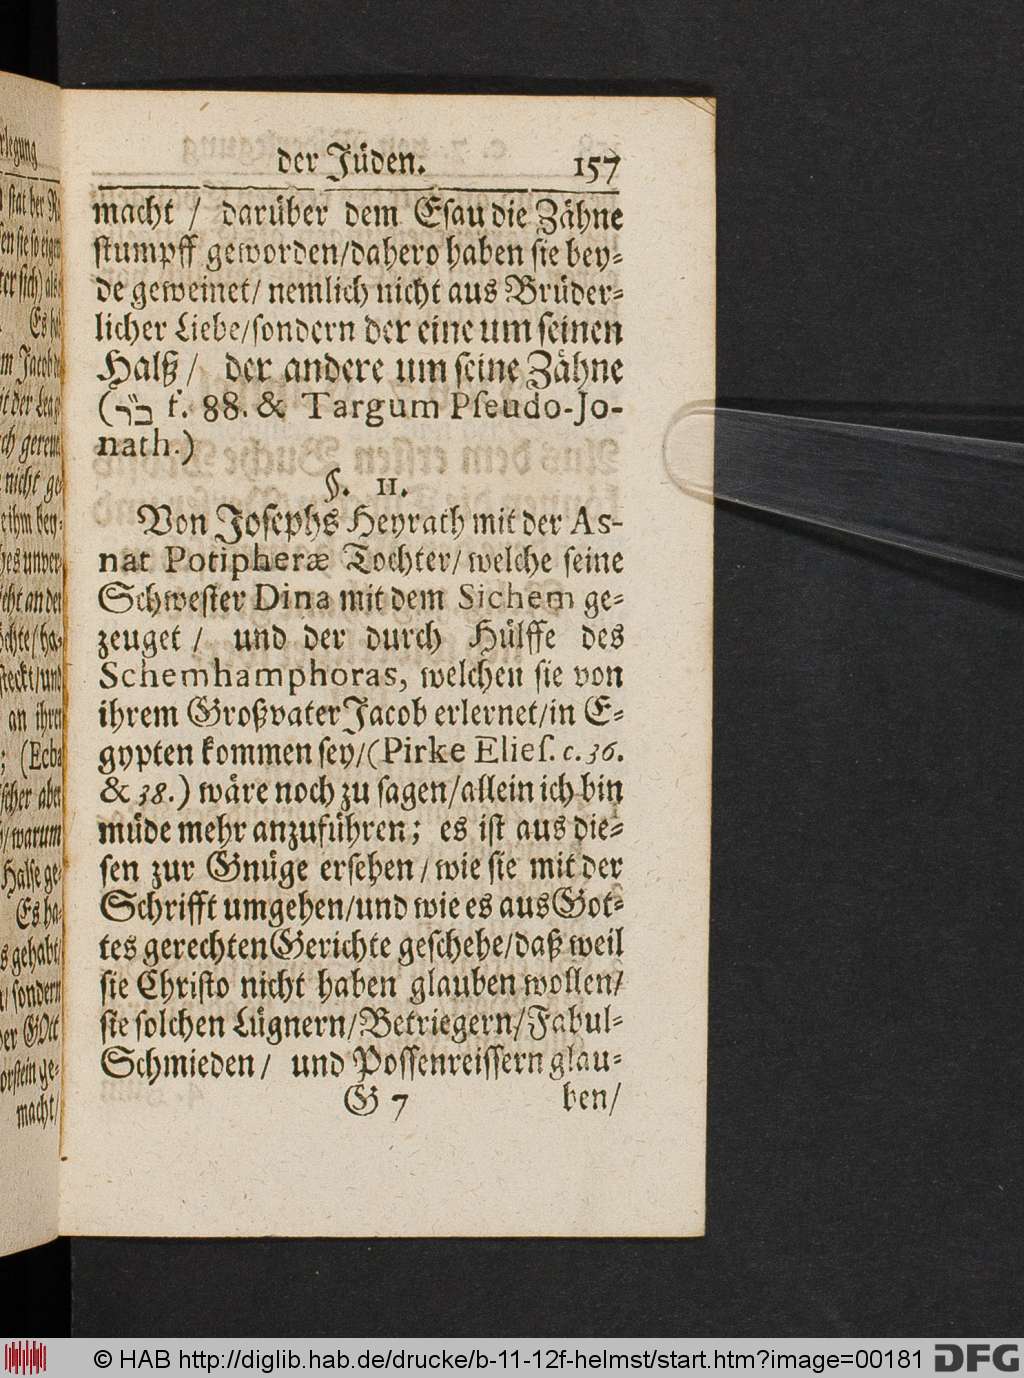 der Jüden. 157
macht / darüber dem Esau die Zähne
stumpff geworden/dahero haben sie bey-
de geweinet/ nemlich nicht aus Brüder-
licher Liebe/sondern der eine um seinen
Halß/ der andere um seine Zähne
(ב״ר f. 88. & Targum Pseudo-Jo-
nath.)
§. 11.
Von Josephs Heyrath mit der As-
nat Potipheræ Tochter/ welche seine
Schwester Dina mit dem Sichem ge-
zeuget / und der durch Hülffe des
Schemhamphoras, welchen sie von
ihrem Großvater Jacob erlernet/in E-
gypten kommen sey/(Pirke Elies. c. 36.
& 38.) wäre noch zu sagen/allein ich bin
müde mehr anzuführen; es ist aus die-
sen zur Gnüge ersehen/wie sie mit der
Schrifft umgehen/und wie es aus Got-
tes gerechten Gerichte geschehe/daß weil
sie Christo nicht haben glauben wollen/
sie solchen Lügnern/Betriegern/Fabul-
Schmieden/ und Possenreissern glau-
G 7 ben/
© HAB http://diglib.hab.de/drucke/b-11-12f-helmst/start.htm?image=00181 DFG